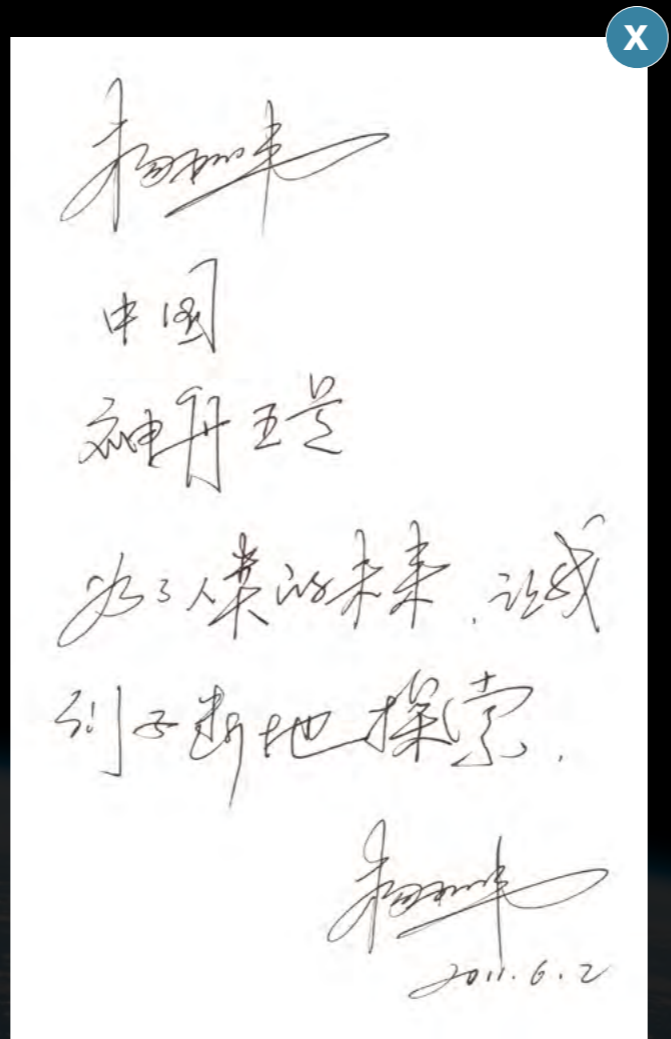 X
杨利伟
中国
神舟五号
为了人类的未来,让我
们不断地探索.
杨利伟
2011.6.2